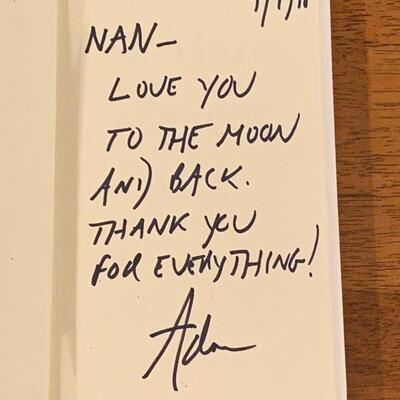 NAN-
LOVE YOU
TO THE MOON
AND BACK.
THANK YOU
FOR EVERYTHING!
Adam